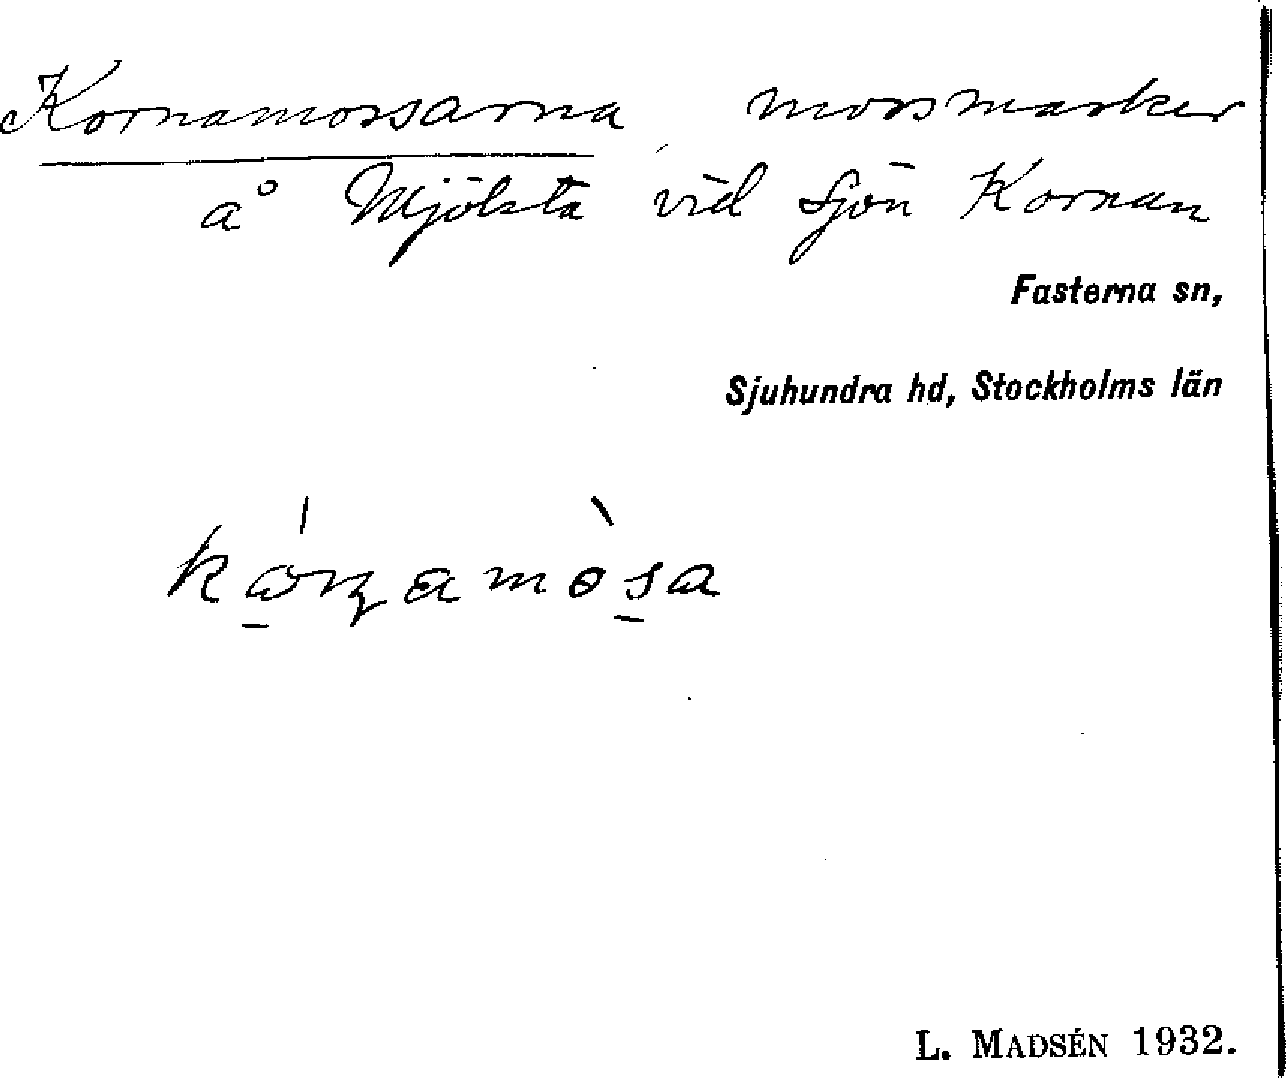 Kornamossarna mossmarker
å Mjölsta vid sjön Kornan
Fasterna sn,
Sjuhundra hd, Stockholms län
L. MADSÉN 1932.